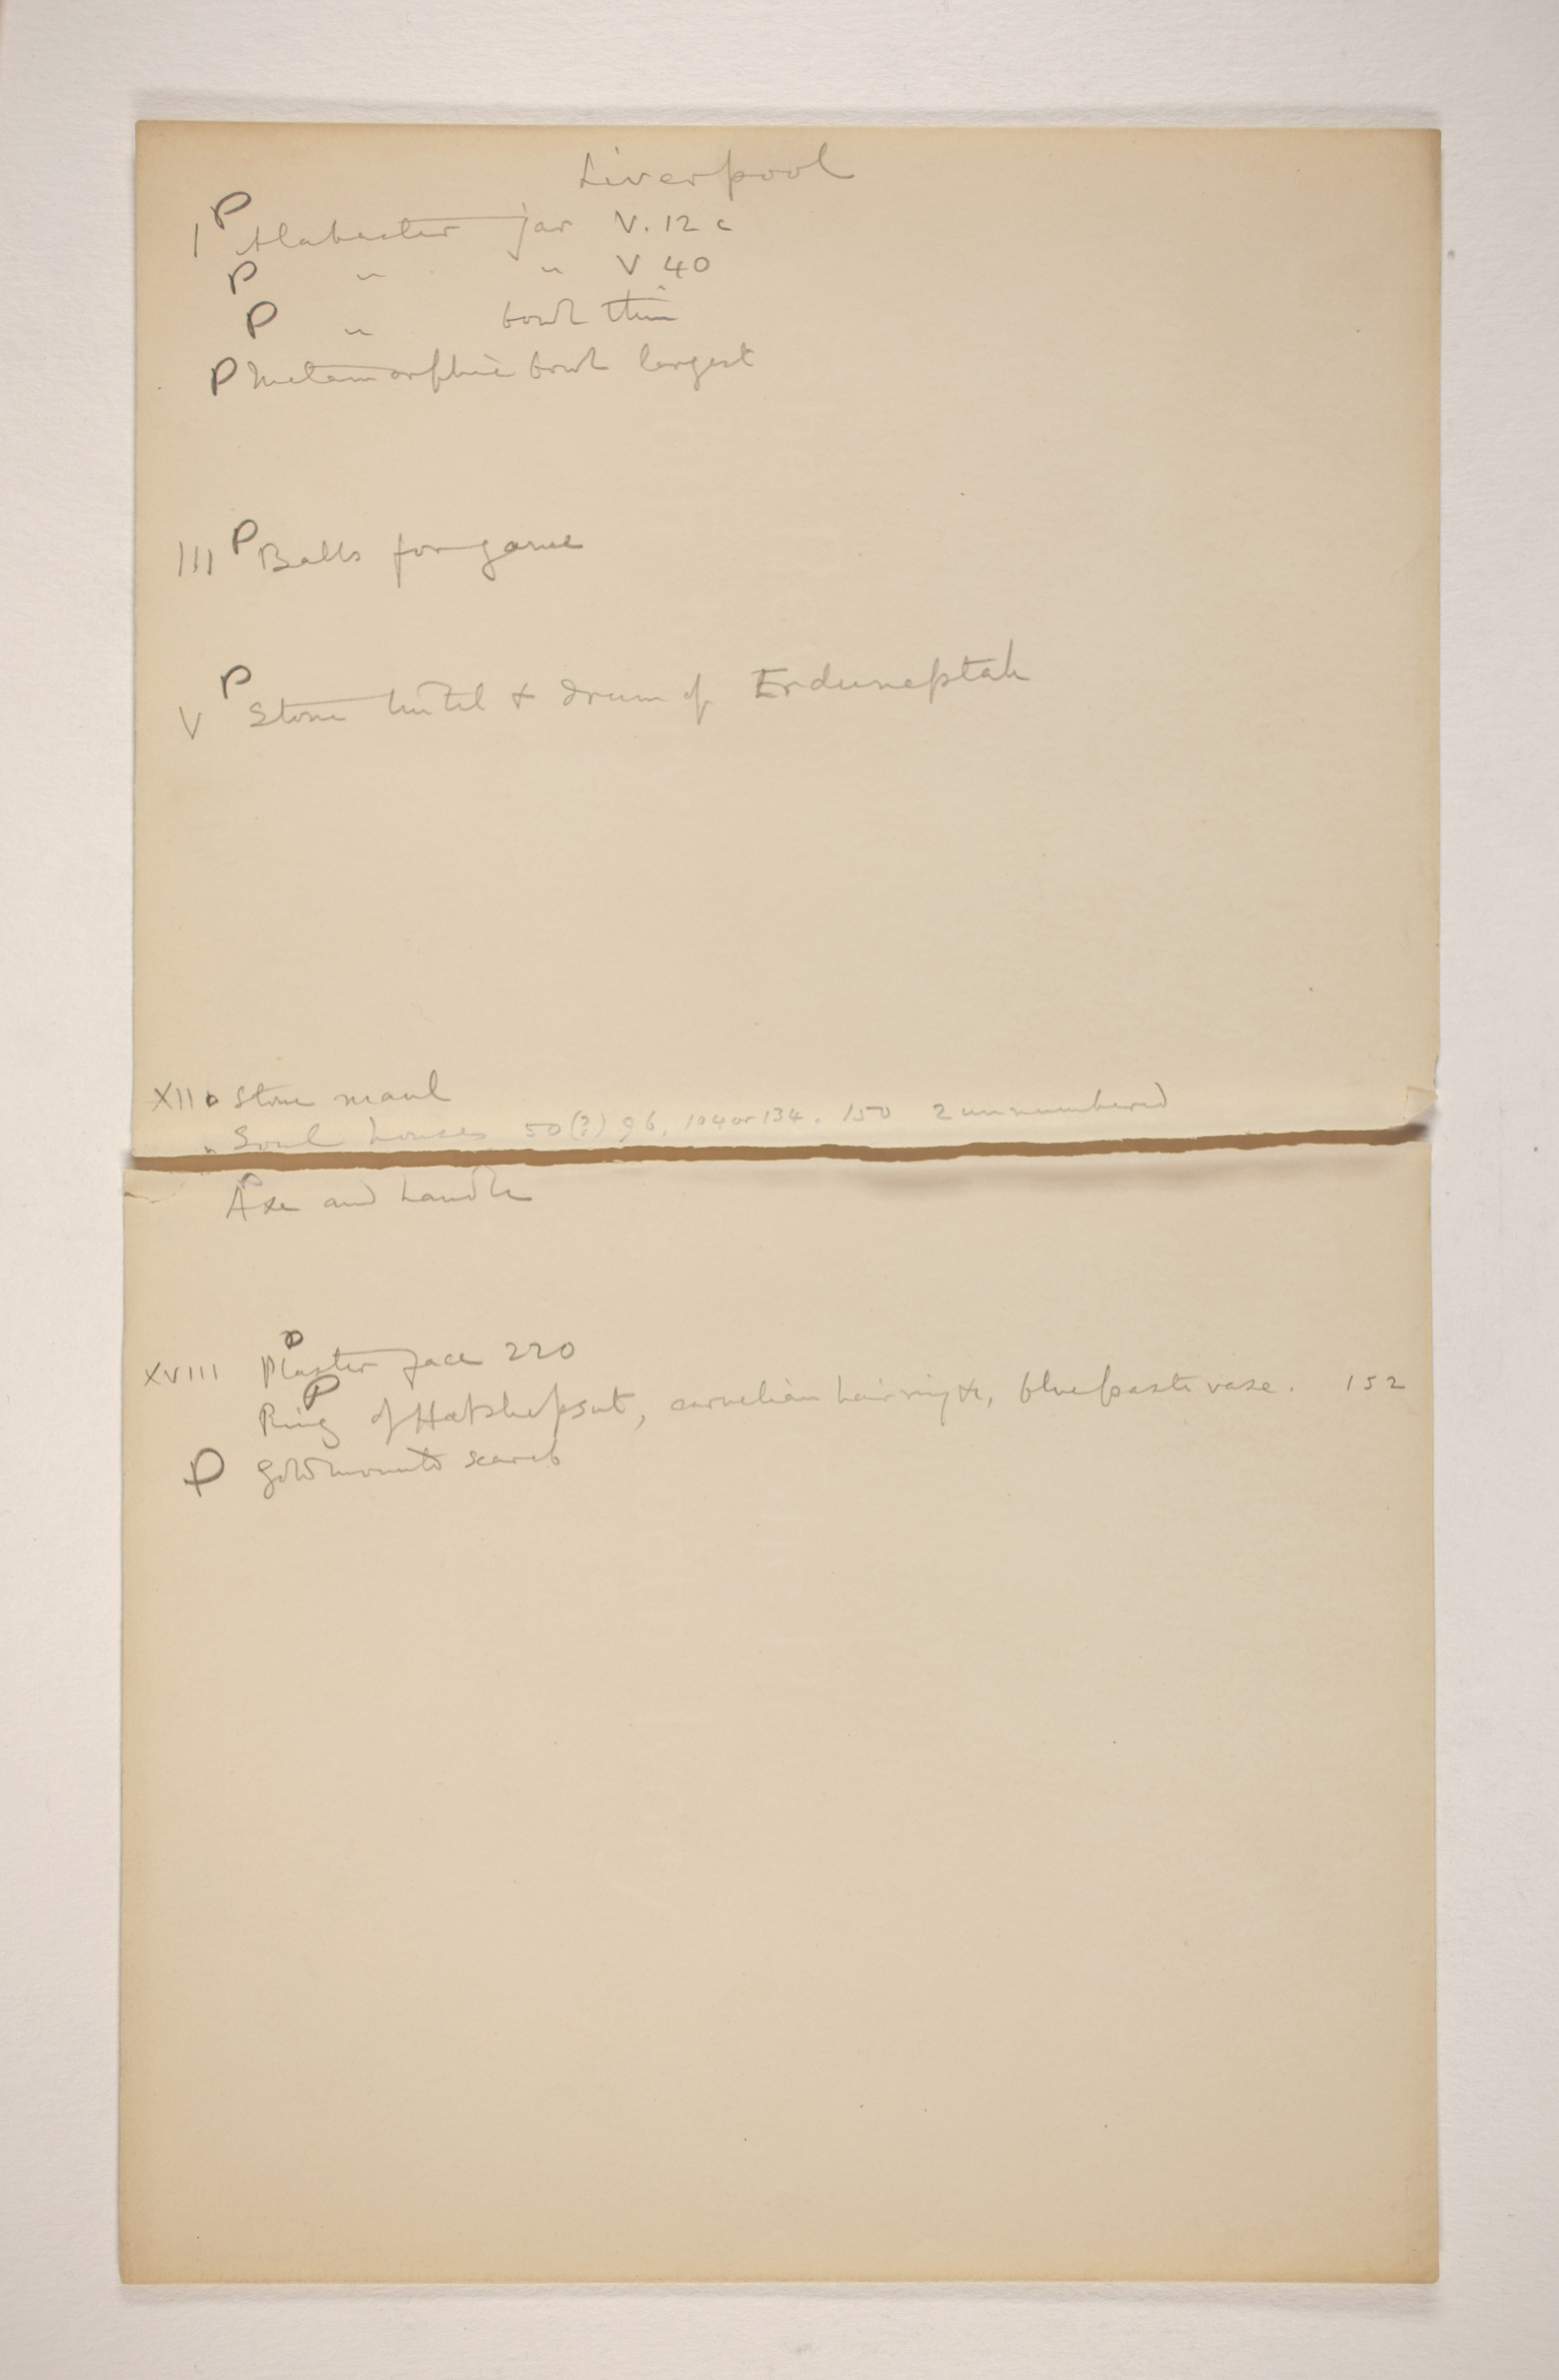 Liverpool
I P Alabaster jar V. 12 c
P " " V 40
P " bowl thin
P Metamorphic bowl largest
III P Balls for game
V P Stone lintel & drum of Erduneptah
XII P Stone maul
" Soul houses 50(?) 96. 104 or 134. 150 2 unnumbered
P Axe and handle
XVIII P Plaster face 220
P Ring of Hatshepsut, carnelian hairring &c, blue paste vase. 152
P Gold mounted scarab